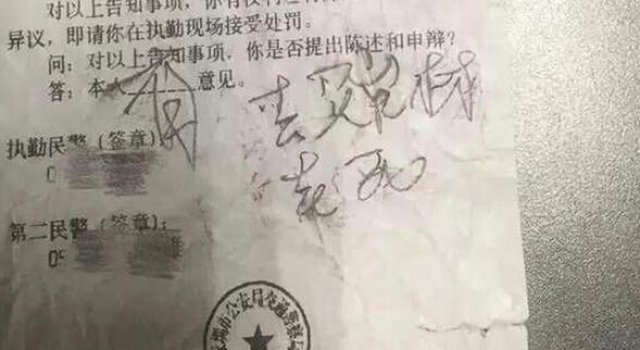 对以上告知事项，你有
异议，即请你在执勤现场接受处罚。
问：对以上告知事项，你是否提出陈述和申辩？
答：本人 有 意见。
去
死
执勤民警（签章）
0
第二民警（签章）：
05
圳市公安局交通警察局